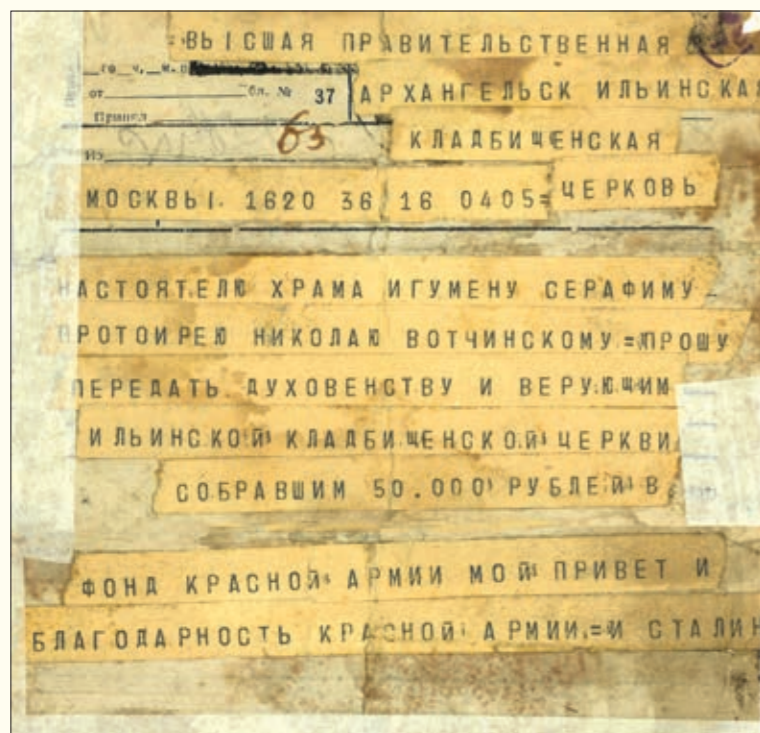 =ВЫСШАЯ ПРАВИТЕЛЬСТВЕННАЯ
го ч. м.
от бл. № 37
АРХАНГЕЛЬСК ИЛЬИНСКАЯ
Принял
63
КЛАДБИЩЕНСКАЯ
Из
МОСКВЫ. 1620 36 16 0405= ЦЕРКОВЬ
НАСТОЯТЕЛЮ ХРАМА ИГУМЕНУ СЕРАФИМУ —
ПРОТОИРЕЮ НИКОЛАЮ ВОТЧИНСКОМУ =ПРОШУ
ПЕРЕДАТЬ ДУХОВЕНСТВУ И ВЕРУЮЩИМ
ИЛЬИНСКОЙ КЛАДБИЩЕНСКОЙ ЦЕРКВИ
СОБРАВШИМ 50.000 РУБЛЕЙ В
ФОНД КРАСНОЙ АРМИИ МОЙ ПРИВЕТ И
БЛАГОДАРНОСТЬ КРАСНОЙ АРМИИ.=И СТАЛИН